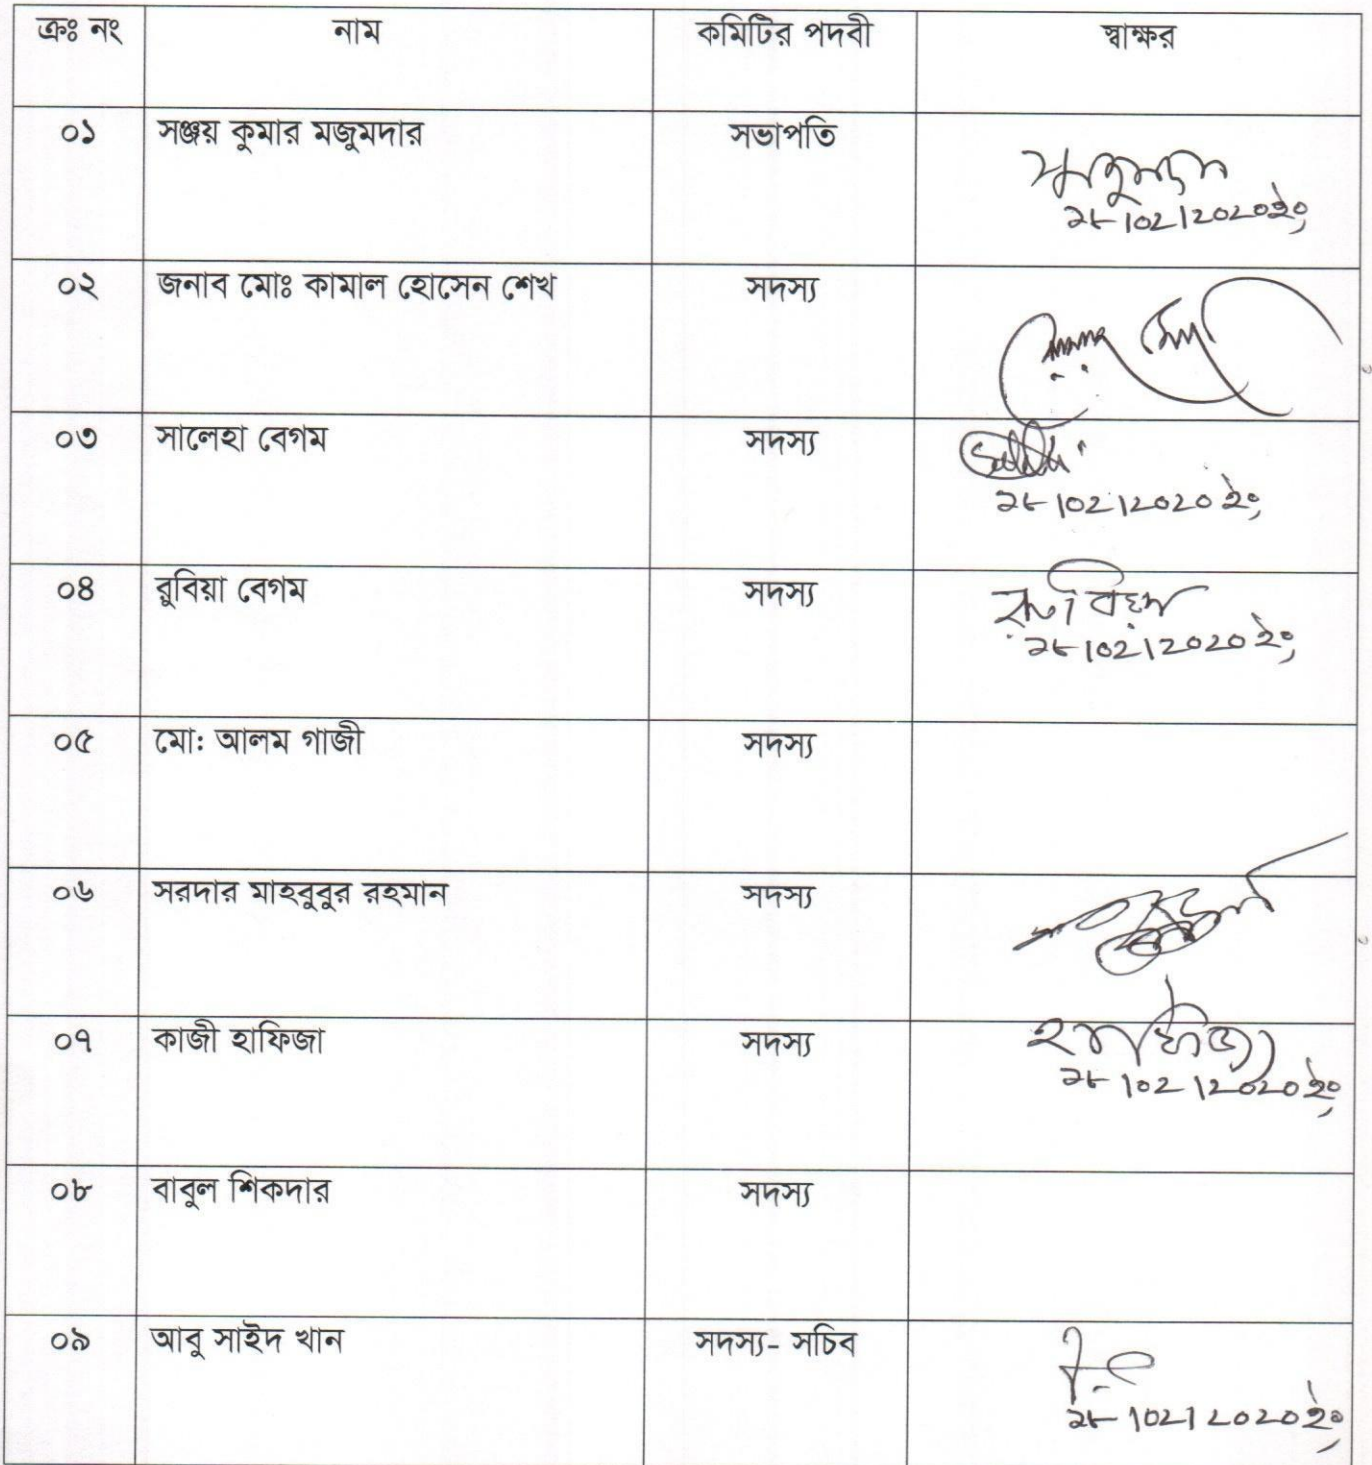 ক্রঃ নং নাম কমিটির পদবী স্বাক্ষর
০১ সঞ্জয় কুমার মজুমদার সভাপতি
২৮/০২/২০২০ইং
০২ জনাব মোঃ কামাল হোসেন শেখ সদস্য
০৩ সালেহা বেগম সদস্য
২৮/০২/২০২০ইং
০৪ রুবিয়া বেগম সদস্য রুবিয়া
২৮/০২/২০২০ইং
০৫ মো: আলম গাজী সদস্য
০৬ সরদার মাহবুবুর রহমান সদস্য
০৭ কাজী হাফিজা সদস্য হাফিজা
২৮/০২/২০২০ইং
০৮ বাবুল শিকদার সদস্য
০৯ আবু সাইদ খান সদস্য- সচিব
২৮/০২/২০২০ইং